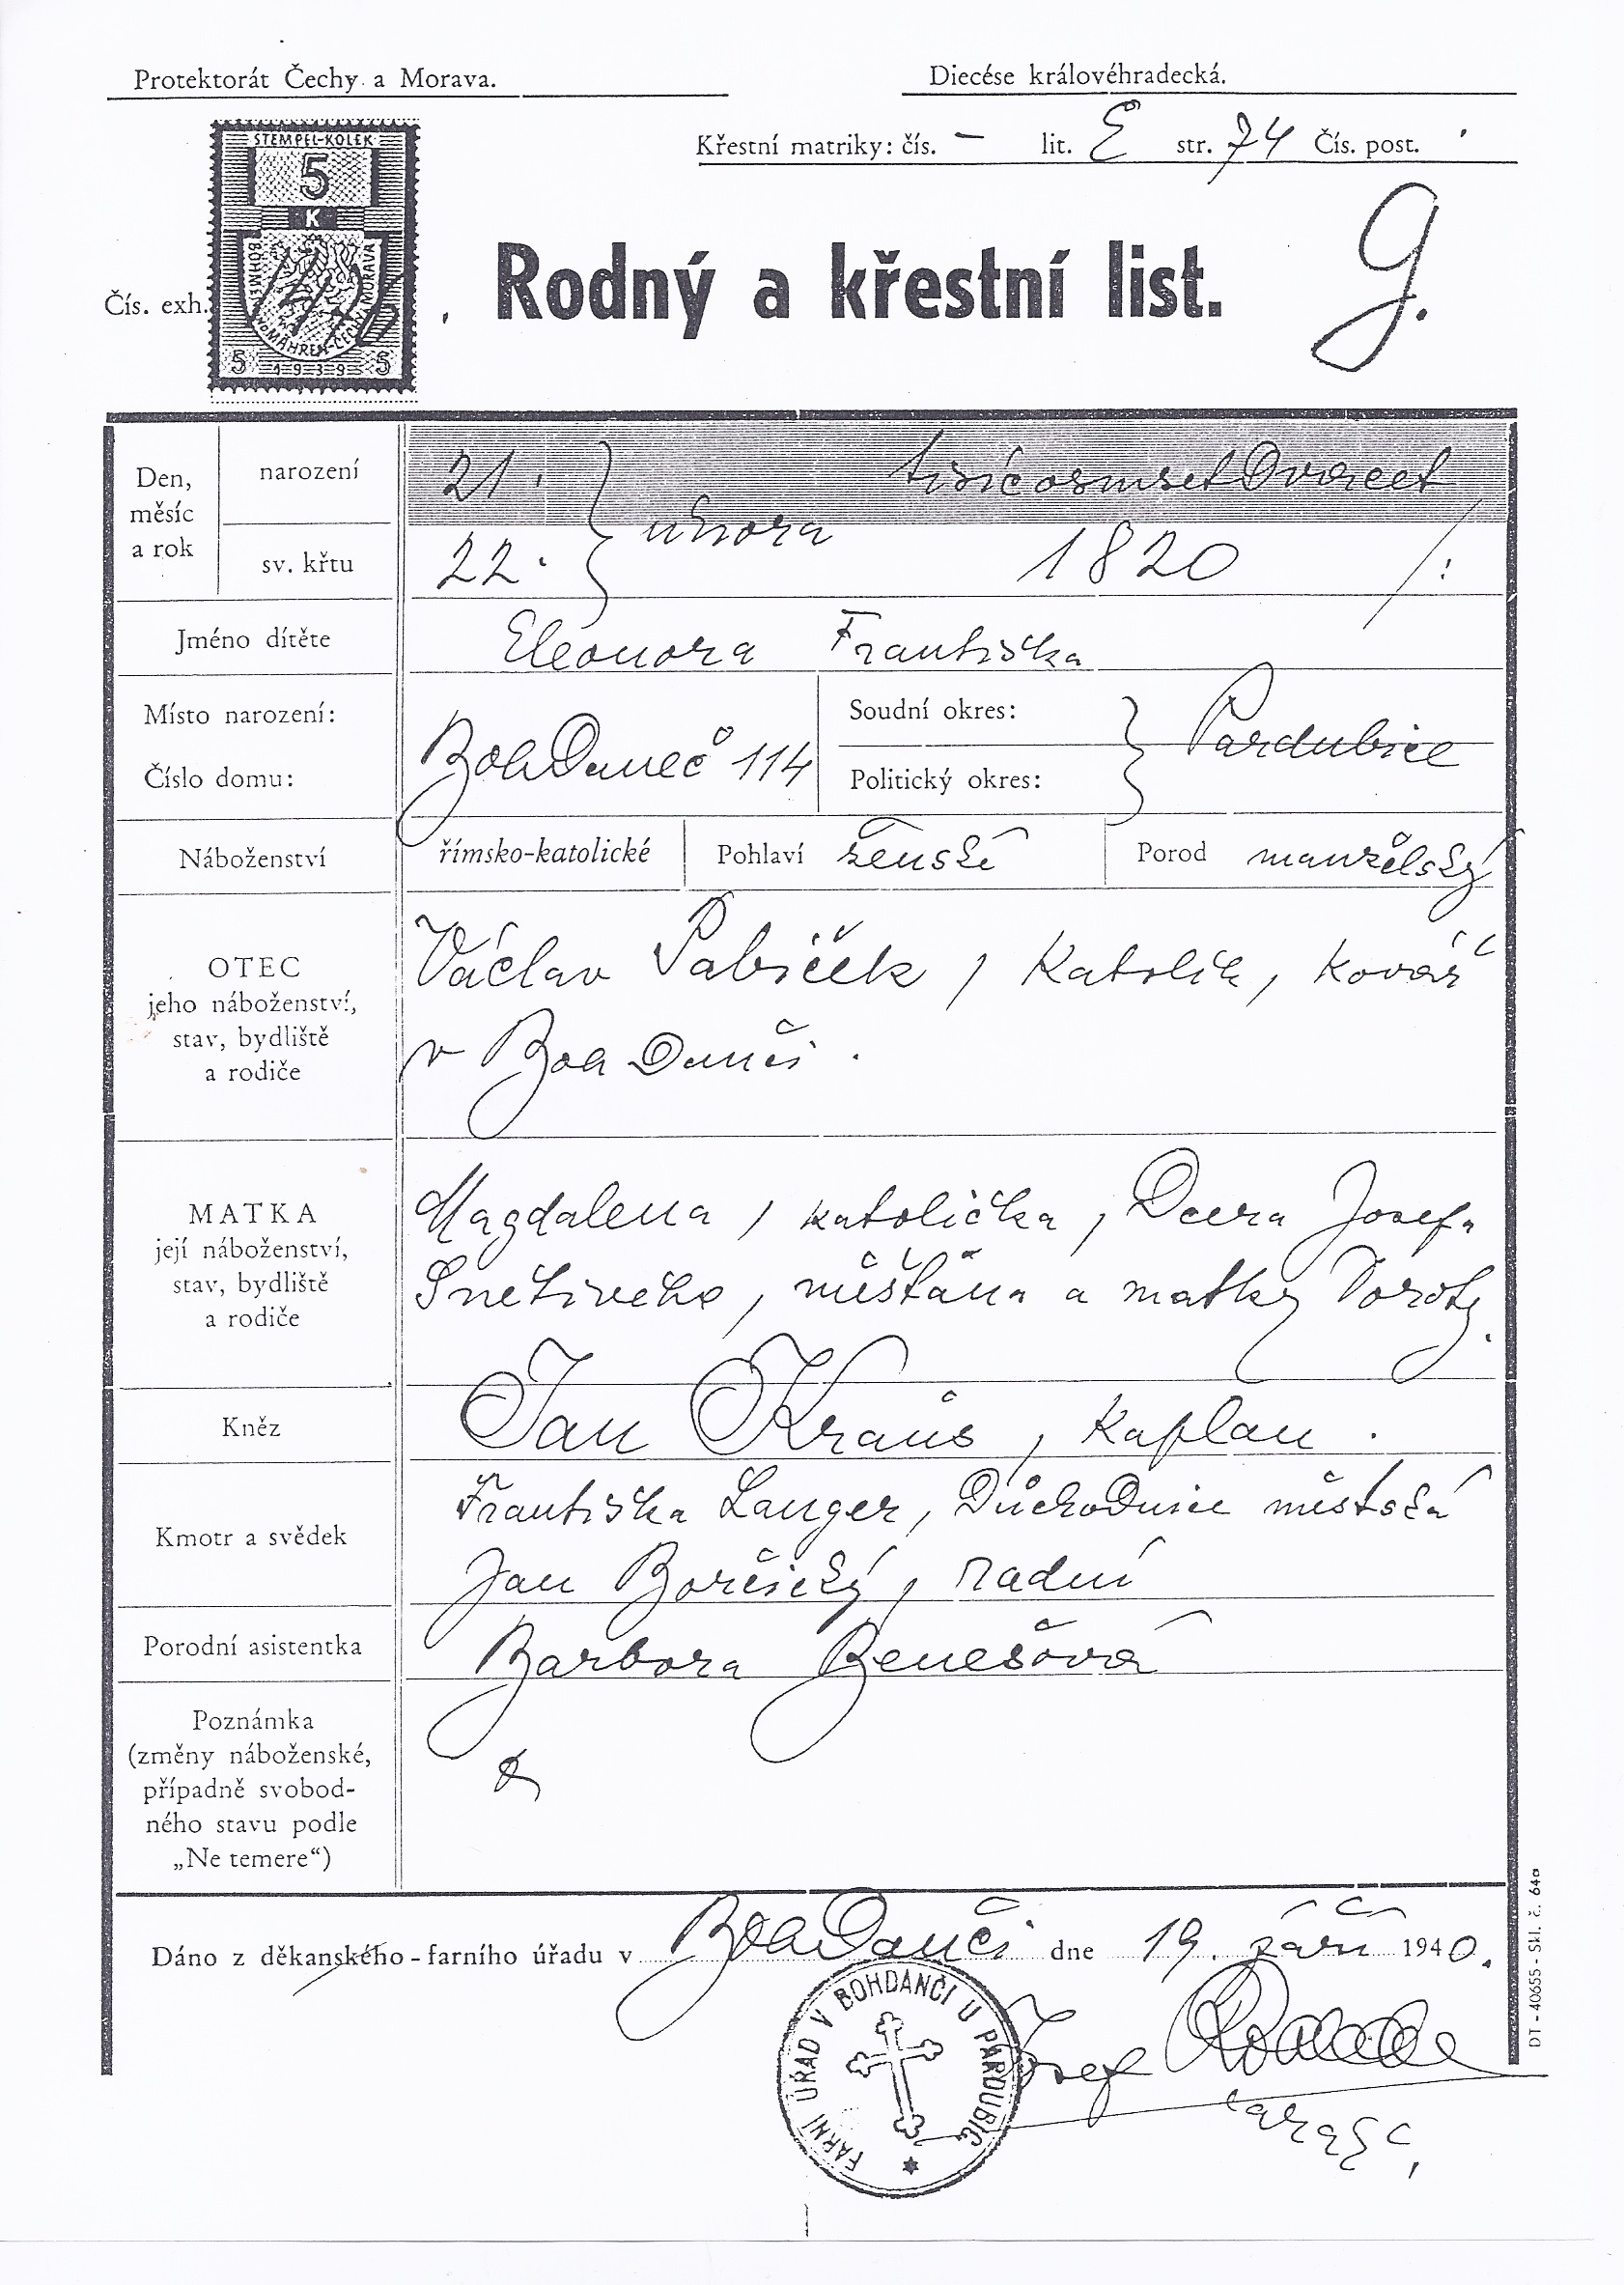 Protektorát Čechy a Morava.
Diecése královéhradecká.
Křestní matriky: čís. – lit. E str. 74 Čís. post.
STEMPEL-KOLEK
5
K
BÖHMEN
MÄHREN-ČECHY
MORAVA
5 1939 5
Čís. exh.
Rodný a křestní list.
g.
Den,
měsíc
a rok
narození
21.
tisícosmsetdvacet
února
sv. křtu
22.
1820
Jméno dítěte
Eleonora Františka
Místo narození:
Číslo domu:
Bohdaneč 114
Soudní okres:
Politický okres:
Pardubice
Náboženství
římsko-katolické
Pohlaví ženské
Porod manželský
OTEC
jeho náboženství,
stav, bydliště
a rodiče
Václav Pabíček, katolík, kovář
v Bohdanči.
MATKA
její náboženství,
stav, bydliště
a rodiče
Magdalena, katolička, dcera Josefa
měšťána a matky Doroty.
Kněz
Jan Kraus, kaplan.
Kmotr a svědek
Františka Langer, důchodnice městská
Jan radní
Porodní asistentka
Barbora Benešová
Poznámka
(změny náboženské,
případně svobod-
ného stavu podle
„Ne temere“)
Dáno z děkanského - farního úřadu v Bohdanči dne 19. září 1940.
FARNÍ ÚŘAD V BOHDANČI U PARDUBIC
Josef
DT - 40655 - Skl. č. 64a